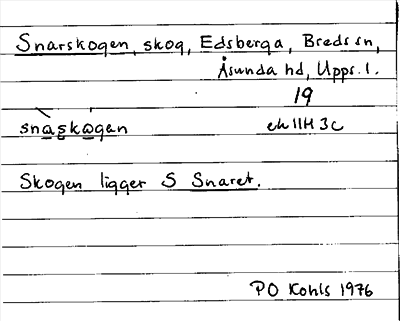 Snarskogen, skog, Edsberga, Breds sn,
Åsunda hd, Upps. l.
19
snaskogen ek 11H 3c
Skogen ligger S Snaret.
PO Kohls 1976